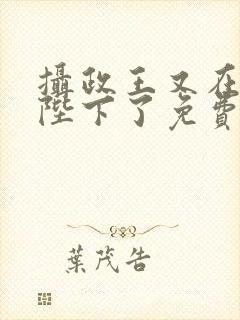 攝政王又在
陛下了免費
葉茂告